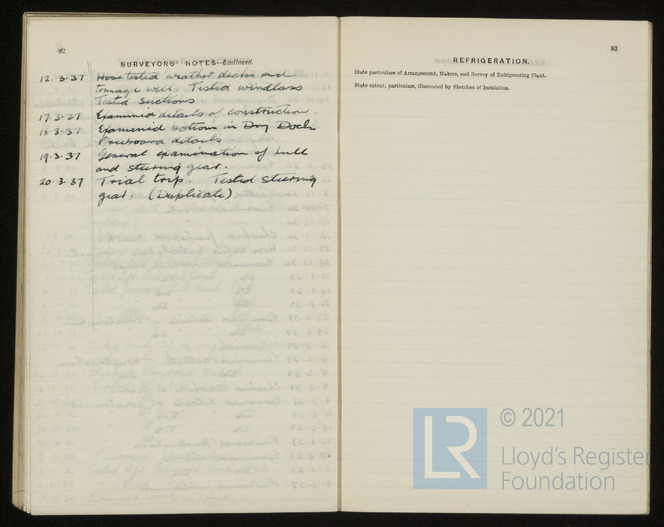 82
SURVEYORS' NOTES—Continued.
12.3.37 Hose tested weather decks and
tonnage well. Tested windlass
Tested suctions
17.3.37 Examined details of construction.
18.3.37 Examined bottom in Dry Dock
Freeboard details
19.3.37 General examination of hull
and steering gear.
20.3.37 Trial trip. Tested steering
gear. (Duplicate).
83
REFRIGERATION.
State particulars of Arrangement, Makers, and Survey of Refrigerating Plant.
State extent, particulars, illustrated by Sketches of Insulation.
LR
© 2021
Lloyd's Register
Foundation